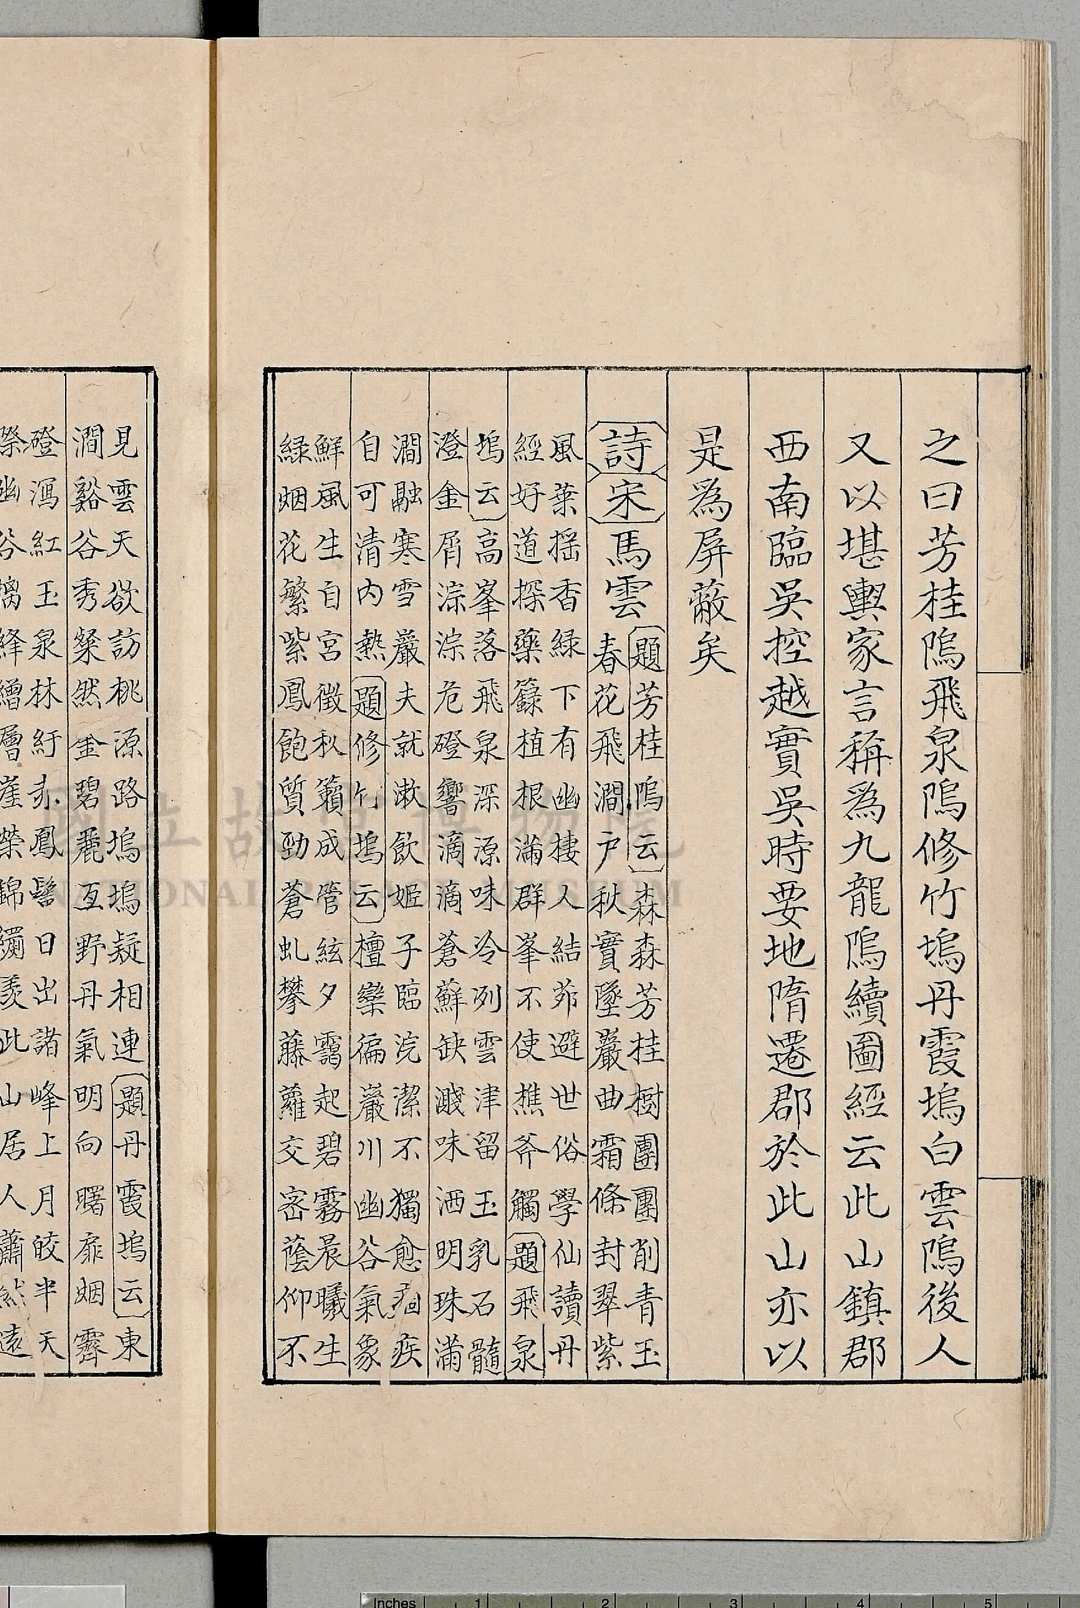 之曰芳桂隖飛泉隖修竹塢丹霞塢白雲隖後人
又以堪輿家言稱爲九龍隖續圖經云此山鎮郡
西南臨吳控越實吳時要地隋遷郡於此山亦以
是爲屏蔽矣
詩宋馬雲題芳桂隖云森森芳桂樹團團削青玉
春花飛澗戶秋實墜巖曲霜條封翠紫
風葉揺香綠下有幽棲人結茆避世俗學仙讀丹
經好道探藥籙植根滿群峯不使樵斧觸題飛泉
塢云高峯落飛泉深源味冷冽雲津留玉乳石髓
澄金屑淙淙危磴響滴滴蒼蘚缺濺味洒明珠滿
澗融寒雪巖夫就漱飲姬子臨浣潔不獨愈痼疾
自可清内熱題修竹塢云檀欒徧巖川幽谷氣象
鮮風生自宮徵秋籟成管絃夕靄起碧霧晨曦生
綠烟花繁紫鳳飽質勁蒼虬攀藤蘿交密蔭仰不
見雲天欲訪桃源路塢塢疑相連題丹霞塢云東
澗谿谷秀粲然金碧麗亙野丹氣明向曙靡烟霽
磴瀉紅玉泉林紆赤鳳髻日出諸峰上月皎半天
國立故宮博物院
NATIONAL PALACE MUSEUM
Inches 1 2 3 4 5